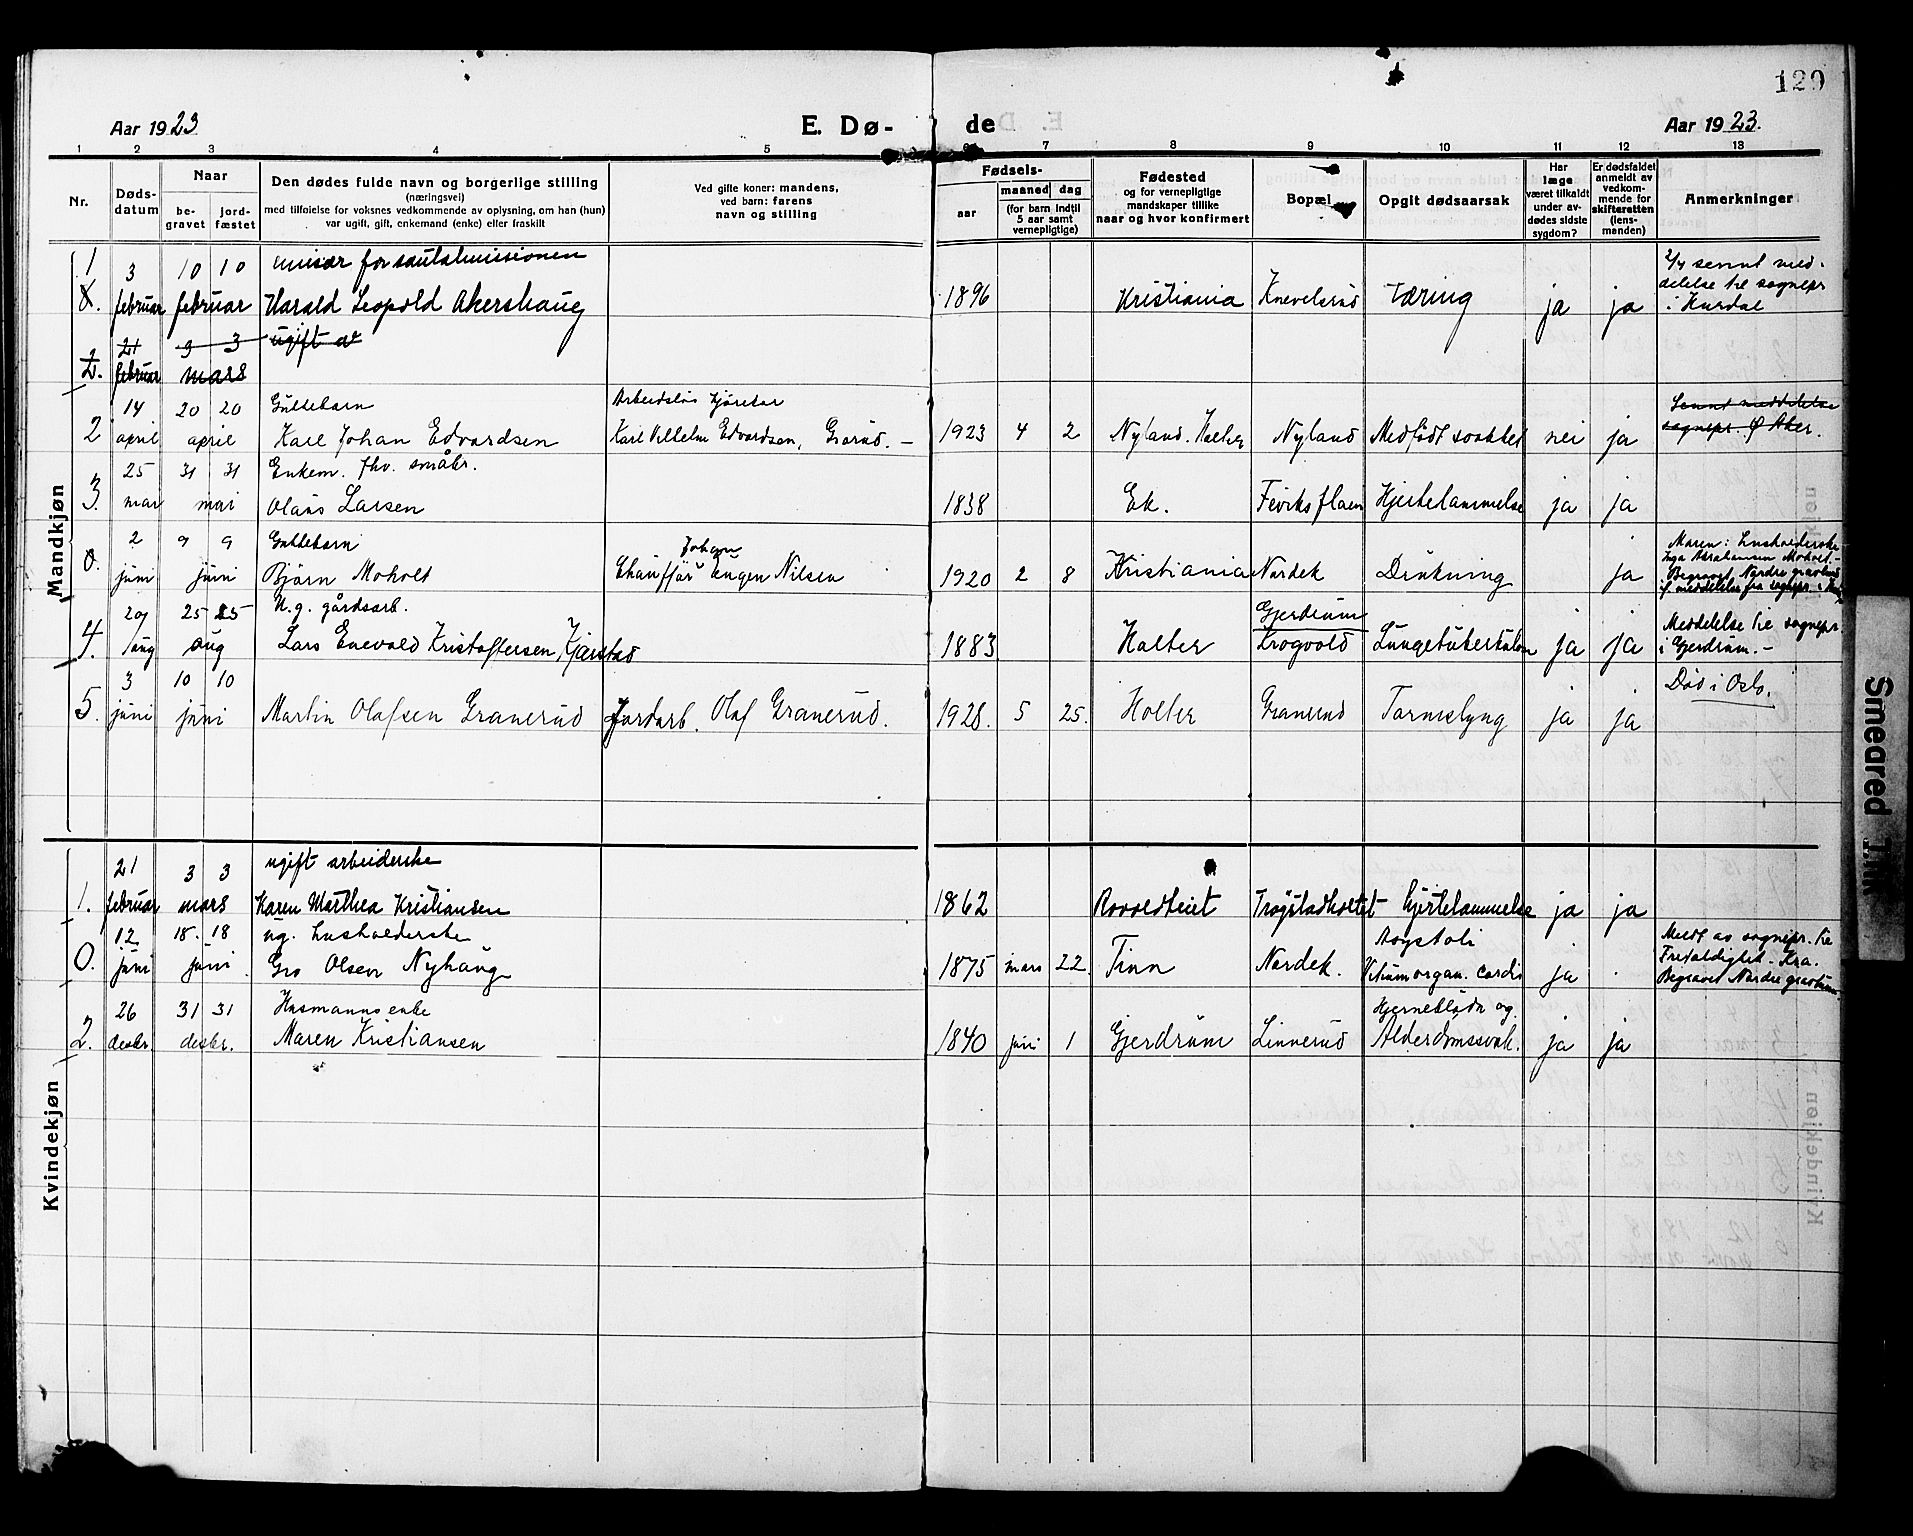 129
Aar 1923
E. Dø-
de
Aar 1923.
1 2 3 4 5 6 7 8 9 10 11 12 13
Nr.
Døds-
datum
Naar
be-
gravet
jord-
fæstet
Den dødes fulde navn og borgerlige stilling
(næringsvei)
med tilføielse for voksnes vedkommende av oplysning, om han (hun)
var ugift, gift, enkemand (enke) eller fraskilt
Ved gifte koner: mandens,
ved barn: farens
navn og stilling
Fødsels-
aar
maaned
dag
(for barn indtil
5 aar samt
vernepligtige)
Fødested
og for vernepligtige
mandskaper tillike
naar og hvor konfirmert
Bopæl
Opgit dødsaarsak
Har
læge
været tilkaldt
under av-
dødes sidste
sygdom?
Er dødsfaldet
anmeldt av
vedkom-
mende for
skifteretten
(lens-
manden)
Anmerkninger
Mandkjøn
1 3 10 10 for santalmissionen
februar februar Harald Leopold Akershaug 1896 Kristiania Knevelsrud Tæring ja ja
2/4 sennt med-
delelse til sognepr
i Hurdal
21 3 3 ugift
2. februar mars
14 20 20 Guttebarn Arbeidsløs kjørekar
2 april april Karl Johan Edvardsen Karl Vilhelm Edvardsen, Grorud. - 1923 4 2 Nyland. Holter Nyland Medfødt svakhet nei ja
Sennt meddelelse
sognepr. Ø Aker.
25 31 31 Enkem. fhv. småbr.
3. mai mai Olaus Larsen 1838 Ek. Hjertelammelse ja ja
2 9 9 Guttebarn Johan
0. juni juni Bjørn Moholt Chauffør Eugen Nilsen 1920 2 8 Kristiania Nordek Drukning ja
Moren: husholderske
Inga Abrahamsen Moholt. -
Begravet Nordre gravlund
29 25 25 U. g. gårdsarb. Gjerdrum
4. aug aug Lars Enevald Kristoffersen, Kjærstad 1883 Holter Krogvold Lungetuberkulose ja ja
Meddelelse til sognepr.
i Gjerdrum. -
3 10 10
5. juni juni Martin Olafsen Granerud Jordarb. Olaf Granerud. 1928. 5 25. Holter Granerud Tarmslyng ja ja
Død i Oslo.
Kvindekjøn
21 3 3 ugift arbeiderske
1. februar mars Karen Marthea Kristiansen 1862 Rovoldteiet Trøgstadholtet hjertelammelse ja ja
12 18. 18 ug. husholderske Asystoli
0. juni juni Gro Olsen Nyhaug 1875 mars 22. Tinn Nordek. Vitium organ. cordis ja
Medt av sognepr. til
Trefoldighet - Kra.
Begravet Nordre gravlund.
26 31 31 Husmannsenke Hjerneblødn og
2. desbr. desbr. Maren Kristiansen 1840 juni 1 Gjerdrum Linnerud Alderdomssvak. ja ja
Smeared Ink